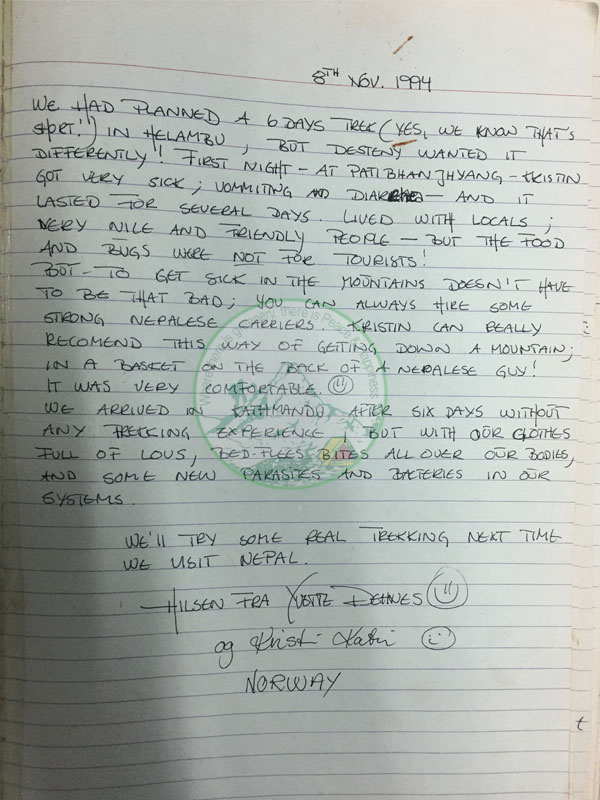 8TH NOV. 1994
WE HAD PLANNED A 6 DAYS TREK (YES, WE KNOW THAT'S
SHORT!) IN HELAMBU, BUT DESTENY WANTED IT
DIFFERENTLY! FIRST NIGHT - AT PATIBHANJHYANG - KRISTIN
GOT VERY SICK; VOMMITING AND DIARRHEA - AND IT
LASTED FOR SEVERAL DAYS. LIVED WITH LOCALS;
VERY NILE AND FRIENDLY PEOPLE - BUT THE FOOD
AND BUGS WERE NOT FOR TOURISTS!
BUT - TO GET SICK IN THE MOUNTAINS DOESN'T HAVE
TO BE THAT BAD; YOU CAN ALWAYS HIRE SOME
STRONG NEPALESE CARRIERS. KRISTIN CAN REALLY
RECOMEND THIS WAY OF GETTING DOWN A MOUNTAIN;
IN A BASKET ON THE BACK OF A NEPALESE GUY!
IT WAS VERY COMFORTABLE.
WE ARRIVED IN KATHMANDU AFTER SIX DAYS WITHOUT
ANY TREKKING EXPERIENCE, BUT WITH OUR CLOTHES
FULL OF LOUS, BED-FLEES BITES ALL OVER OUR BODIES,
AND SOME NEW PARASITES AND BACTERIES IN OUR
SYSTEMS.
WE'LL TRY SOME REAL TREKKING NEXT TIME
WE VISIT NEPAL.
HILSEN FRA YVETTE DEHNES
og Kristi Katri
NORWAY